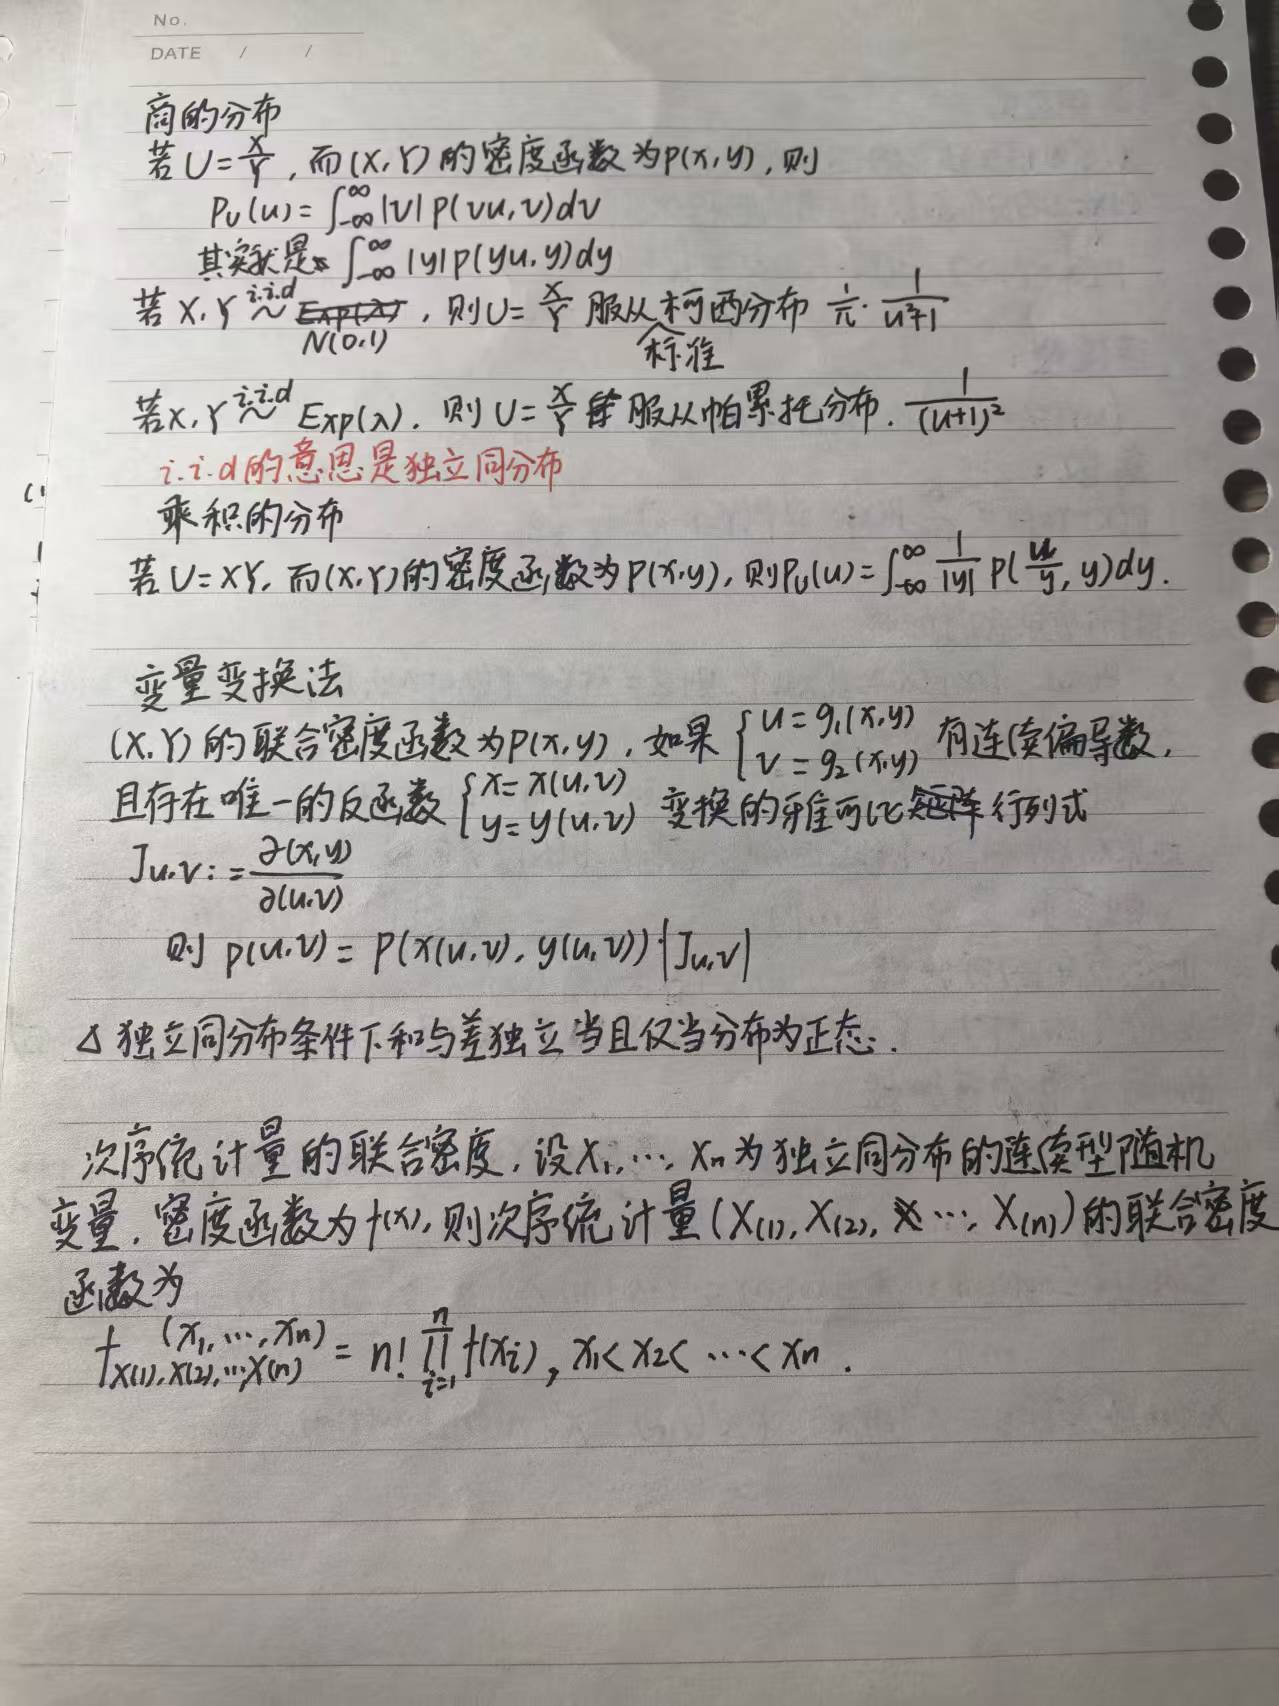 No.
DATE / /
商的分布
若U=X/Y,而(X,Y)的密度函数为p(x,y),则
P_U(u)=∫_{-∞}^{∞}|v|p(vu,v)dv
其实就是∫_{-∞}^{∞}|y|p(yu,y)dy
若X,Y i.i.d ~ Exp(λ) N(0,1),则U=X/Y服从标准柯西分布 1/π·1/(u²+1)
若X,Y i.i.d ~ Exp(λ).则U=X/Y服从帕累托分布.1/(u+1)²
i.i.d的意思是独立同分布
乘积的分布
若U=XY,而(X,Y)的密度函数为p(x,y),则P_U(u)=∫_{-∞}^{∞}1/|y| p(u/y,y)dy.
变量变换法
(X,Y)的联合密度函数为p(x,y),如果{u=g₁(x,y) v=g₂(x,y)有连续偏导数,
且存在唯一的反函数{x=x(u,v) y=y(u,v) 变换的雅可比矩阵行列式
J_{u,v}:=∂(x,y)/∂(u,v)
则p(u,v)=p(x(u,v),y(u,v))|J_{u,v}|
△独立同分布条件下和与差独立当且仅当分布为正态.
次序统计量的联合密度,设X₁,…,Xn为独立同分布的连续型随机
变量,密度函数为f(x),则次序统计量(X(1),X(2),…,X(n))的联合密度
函数为
f_{X(1),X(2),…,X(n)}(x₁,…,xn)=n!∏_{i=1}^{n}f(xi),x₁<x₂<…<xn.